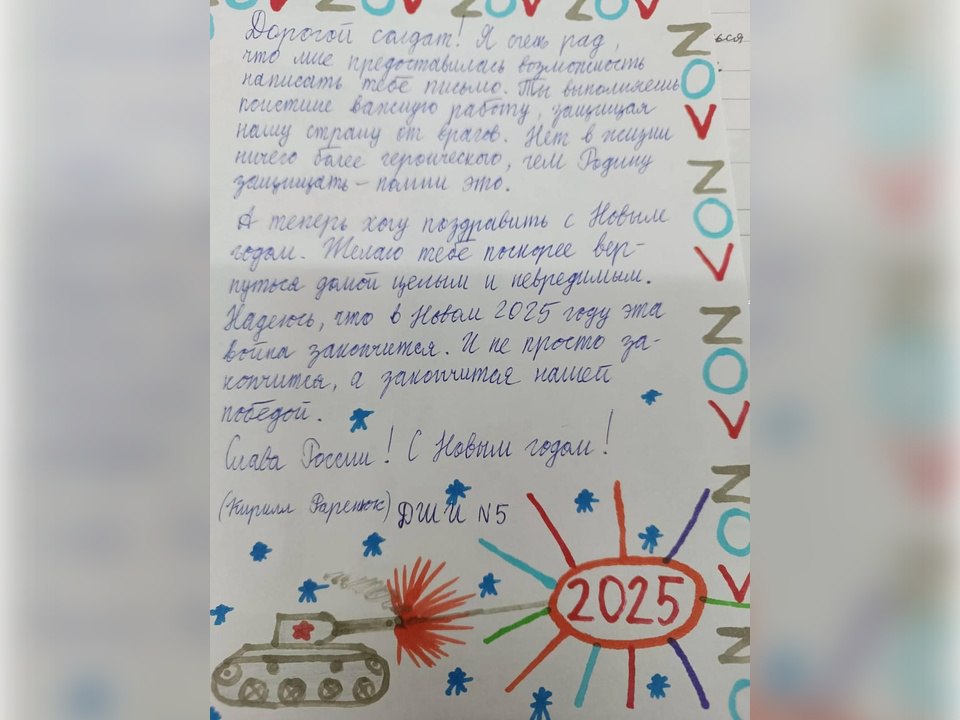 ZOV ZOV ZOV ZOV
Дорогой солдат! Я очень рад,
что мне предоставилась возможность
написать тебе письмо. Ты выполняешь
поистине важную работу, защищая
нашу страну от врагов. Нет в жизни
ничего более героического, чем Родину
защищать – помни это.
А теперь хочу поздравить с Новым
годом. Желаю тебе поскорее вер-
нуться домой целым и невредимым.
Надеюсь, что в Новом 2025 году эта
война закончится. И не просто за-
кончится, а закончится нашей
победой.
Слава России! С Новым годом!
(Кирилл Фаренюк) ДШИ N5
2025
ься
Z
O
V
Z
O
V
Z
O
V
Z
O
V
Z
O